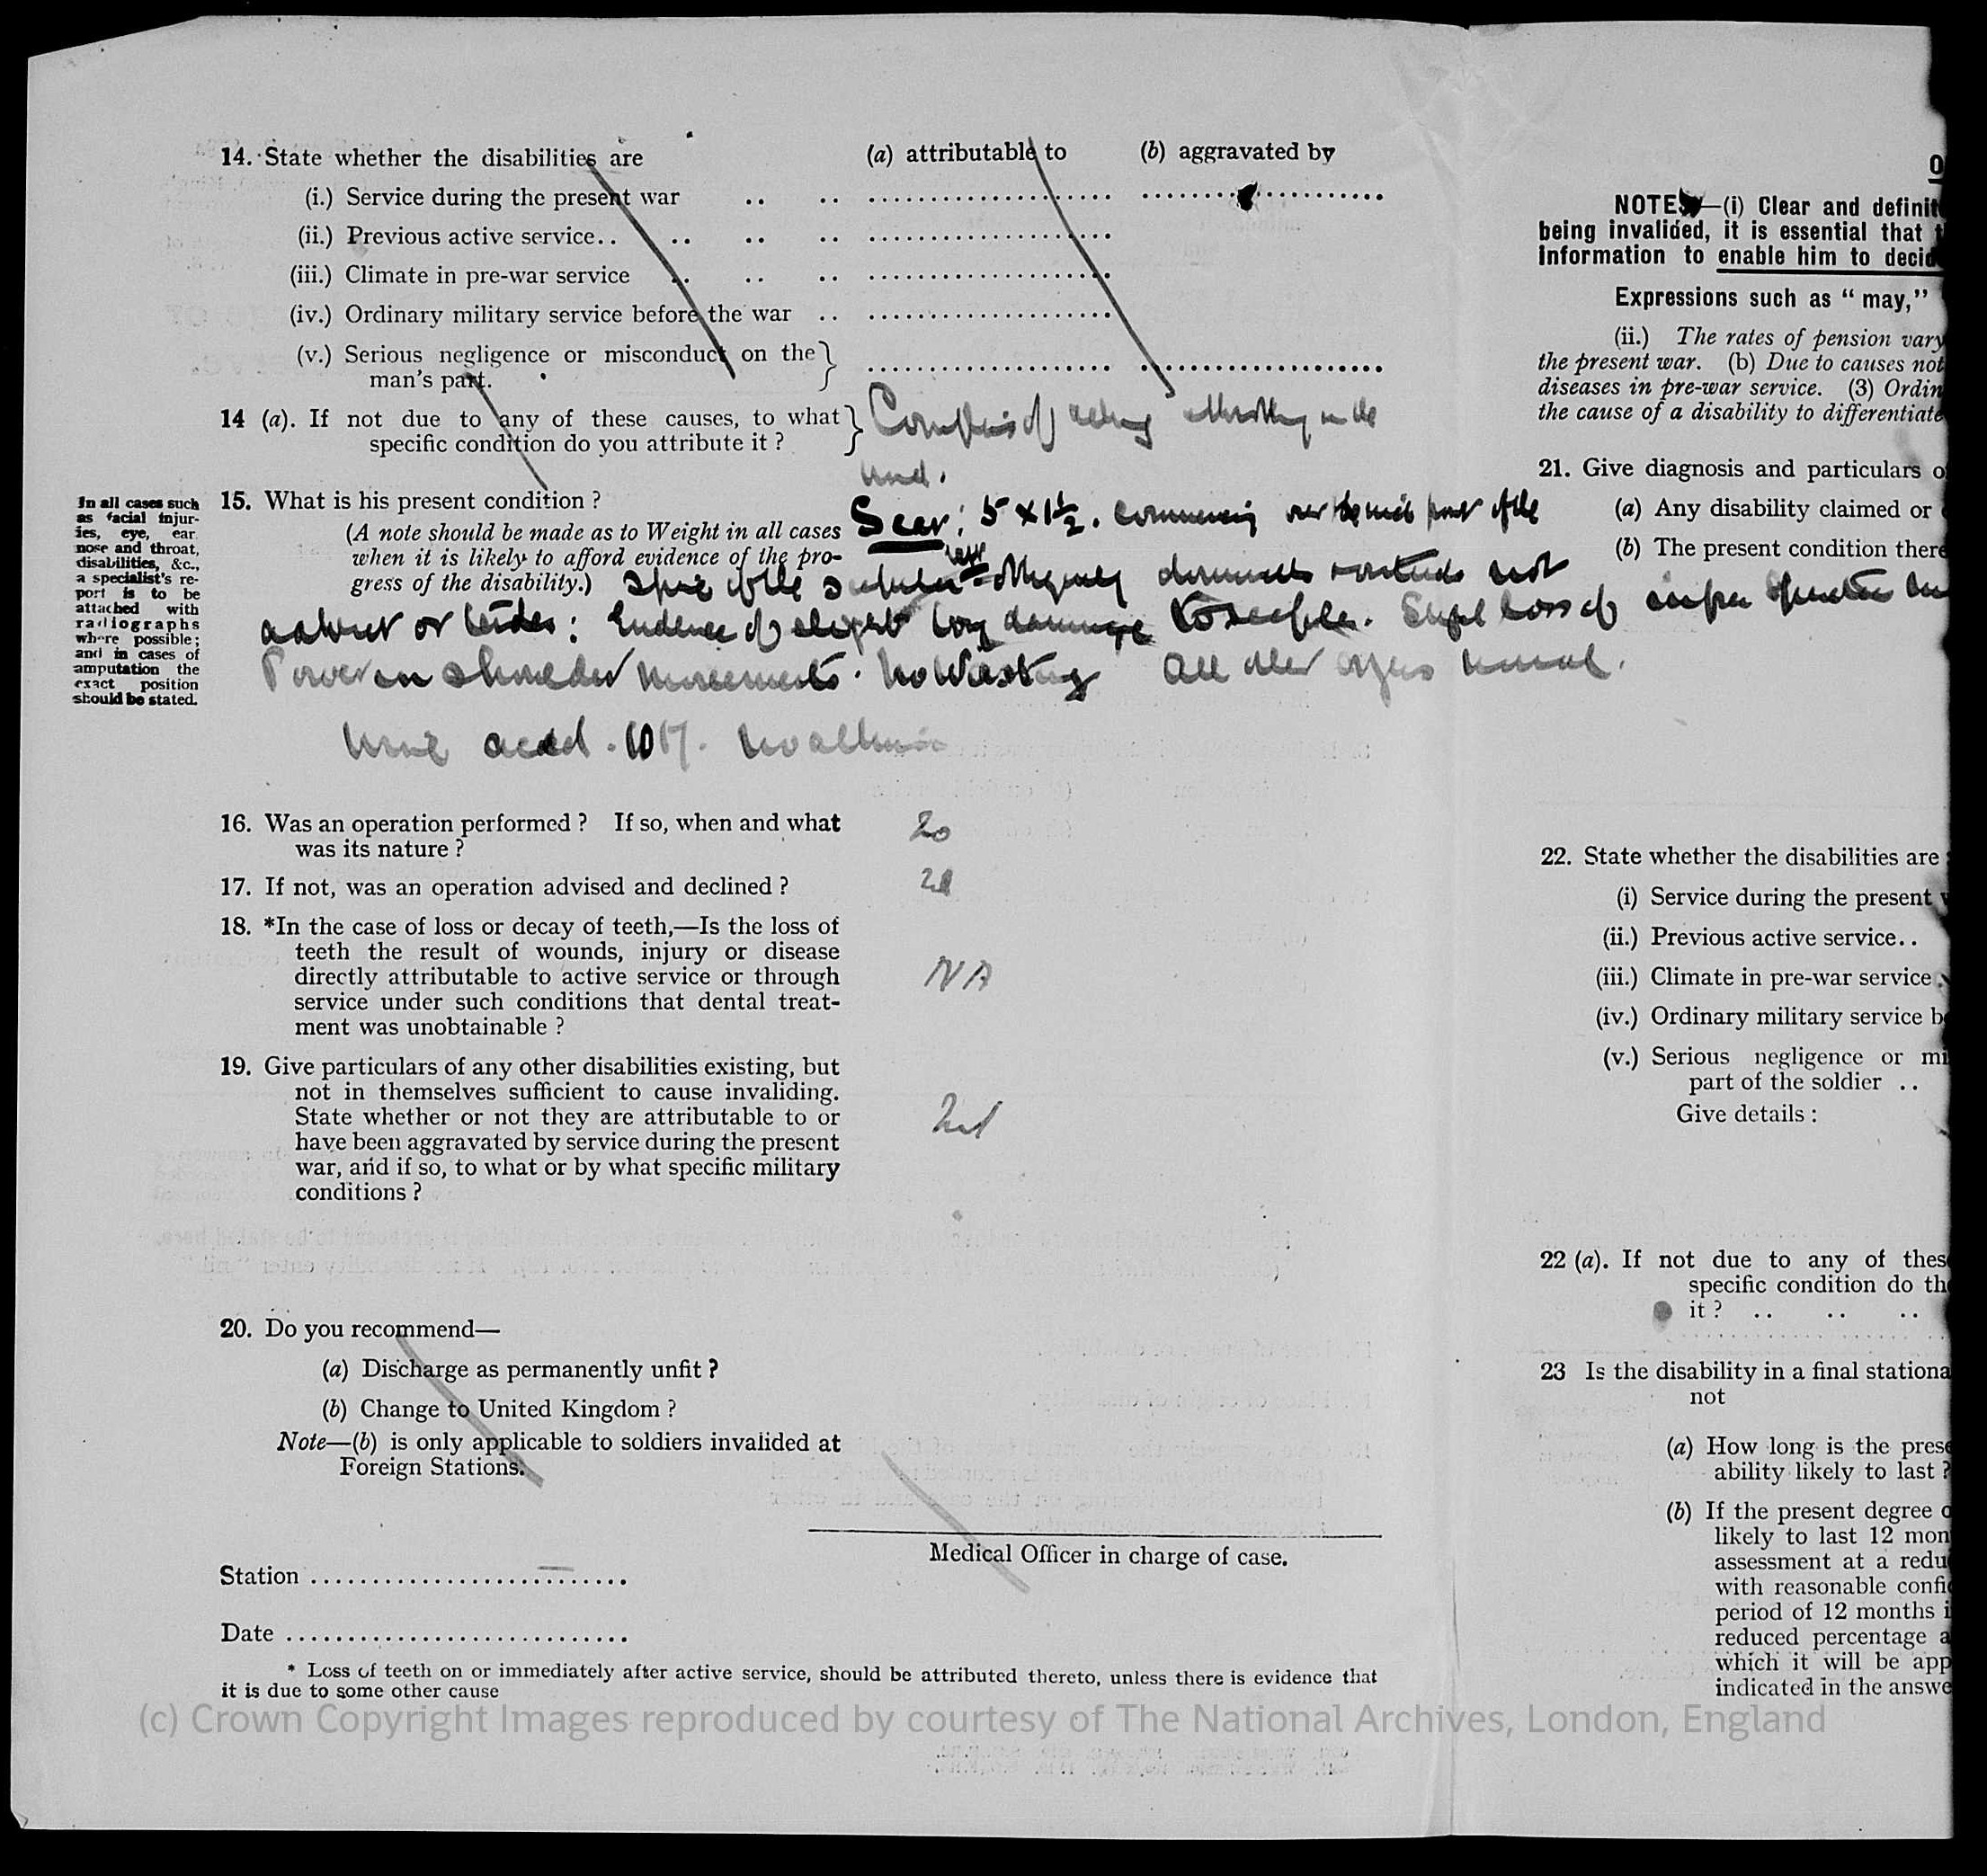 14. State whether the disabilities are (a) attributable to (b) aggravated by
(i.) Service during the present war .. ..
(ii.) Previous active service.. .. .. ..
(iii.) Climate in pre-war service .. .. ..
(iv.) Ordinary military service before the war ..
(v.) Serious negligence or misconduct on the
man's part.
14 (a). If not due to any of these causes, to what
specific condition do you attribute it ?
Complains of aching in the
15. What is his present condition ?
(A note should be made as to Weight in all cases
when it is likely to afford evidence of the pro-
gress of the disability.)
Scar: 5 x 1½. commencing over the part of the
Spine of the scapula obliquely downwards outwards not
adherent or tender: Evidence of slight bony damage to scapula. Slight loss of
Power in shoulder movements. No Wasting All other organs normal.
Urine acid. 1017. No albumin
In all cases such
as facial injur-
ies, eye, ear
nose and throat,
disabilities, &c.,
a specialist's re-
port is to be
attached with
radiographs
where possible;
and in cases of
amputation the
exact position
should be stated.
16. Was an operation performed ? If so, when and what
was its nature ?
17. If not, was an operation advised and declined ?
18. *In the case of loss or decay of teeth,—Is the loss of
teeth the result of wounds, injury or disease
directly attributable to active service or through
service under such conditions that dental treat-
ment was unobtainable ?
NA
19. Give particulars of any other disabilities existing, but
not in themselves sufficient to cause invaliding.
State whether or not they are attributable to or
have been aggravated by service during the present
war, and if so, to what or by what specific military
conditions ?
20. Do you recommend—
(a) Discharge as permanently unfit ?
(b) Change to United Kingdom ?
Note—(b) is only applicable to soldiers invalided at
Foreign Stations.
Medical Officer in charge of case.
Station
Date
* Loss of teeth on or immediately after active service, should be attributed thereto, unless there is evidence that
it is due to some other cause
NOTES—(i) Clear and definit
being invalided, it is essential that
information to enable him to decid
Expressions such as “ may,”
(ii.) The rates of pension vary
the present war. (b) Due to causes not
diseases in pre-war service. (3) Ordin
the cause of a disability to differentiate
21. Give diagnosis and particulars o
(a) Any disability claimed or
(b) The present condition there
22. State whether the disabilities are
(i) Service during the present
(ii.) Previous active service..
(iii.) Climate in pre-war service
(iv.) Ordinary military service b
(v.) Serious negligence or mi
part of the soldier ..
Give details :
22 (a). If not due to any of thes
specific condition do th
it ? .. .. ..
23 Is the disability in a final stationa
not
(a) How long is the prese
ability likely to last ?
(b) If the present degree o
likely to last 12 mon
assessment at a redu
with reasonable confi
period of 12 months i
reduced percentage a
which it will be app
indicated in the answe
(c) Crown Copyright Images reproduced by courtesy of The National Archives, London, England